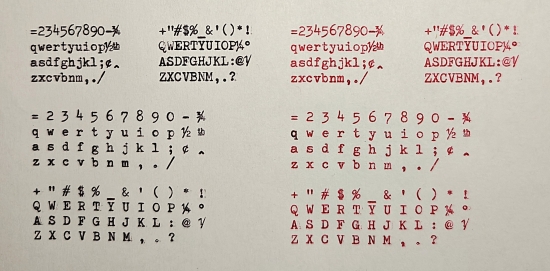 =234567890-¾ +"#$%_&'()*! =234567890-¾ +"#$%_&'()*!
qwertyuiop½ QWERTYUIOP¼° qwertyuiop½ QWERTYUIOP¼°
asdfghjkl;¢^ ASDFGHJKL:@ asdfghjkl;¢^ ASDFGHJKL:@
zxcvbnm,./ ZXCVBNM,.? zxcvbnm,./ ZXCVBNM,.?
= 2 3 4 5 6 7 8 9 0 - ¾ = 2 3 4 5 6 7 8 9 0 - ¾
q w e r t y u i o p ½ q w e r t y u i o p ½
a s d f g h j k l ; ¢ ^ a s d f g h j k l ; ¢ ^
z x c v b n m , . / z x c v b n m , . /
+ " # $ % _ & ' ( ) * ! + " # $ % _ & ' ( ) * !
Q W E R T Y U I O P ¼ ° Q W E R T Y U I O P ¼ °
A S D F G H J K L : @ A S D F G H J K L : @
Z X C V B N M , . ? Z X C V B N M , . ?